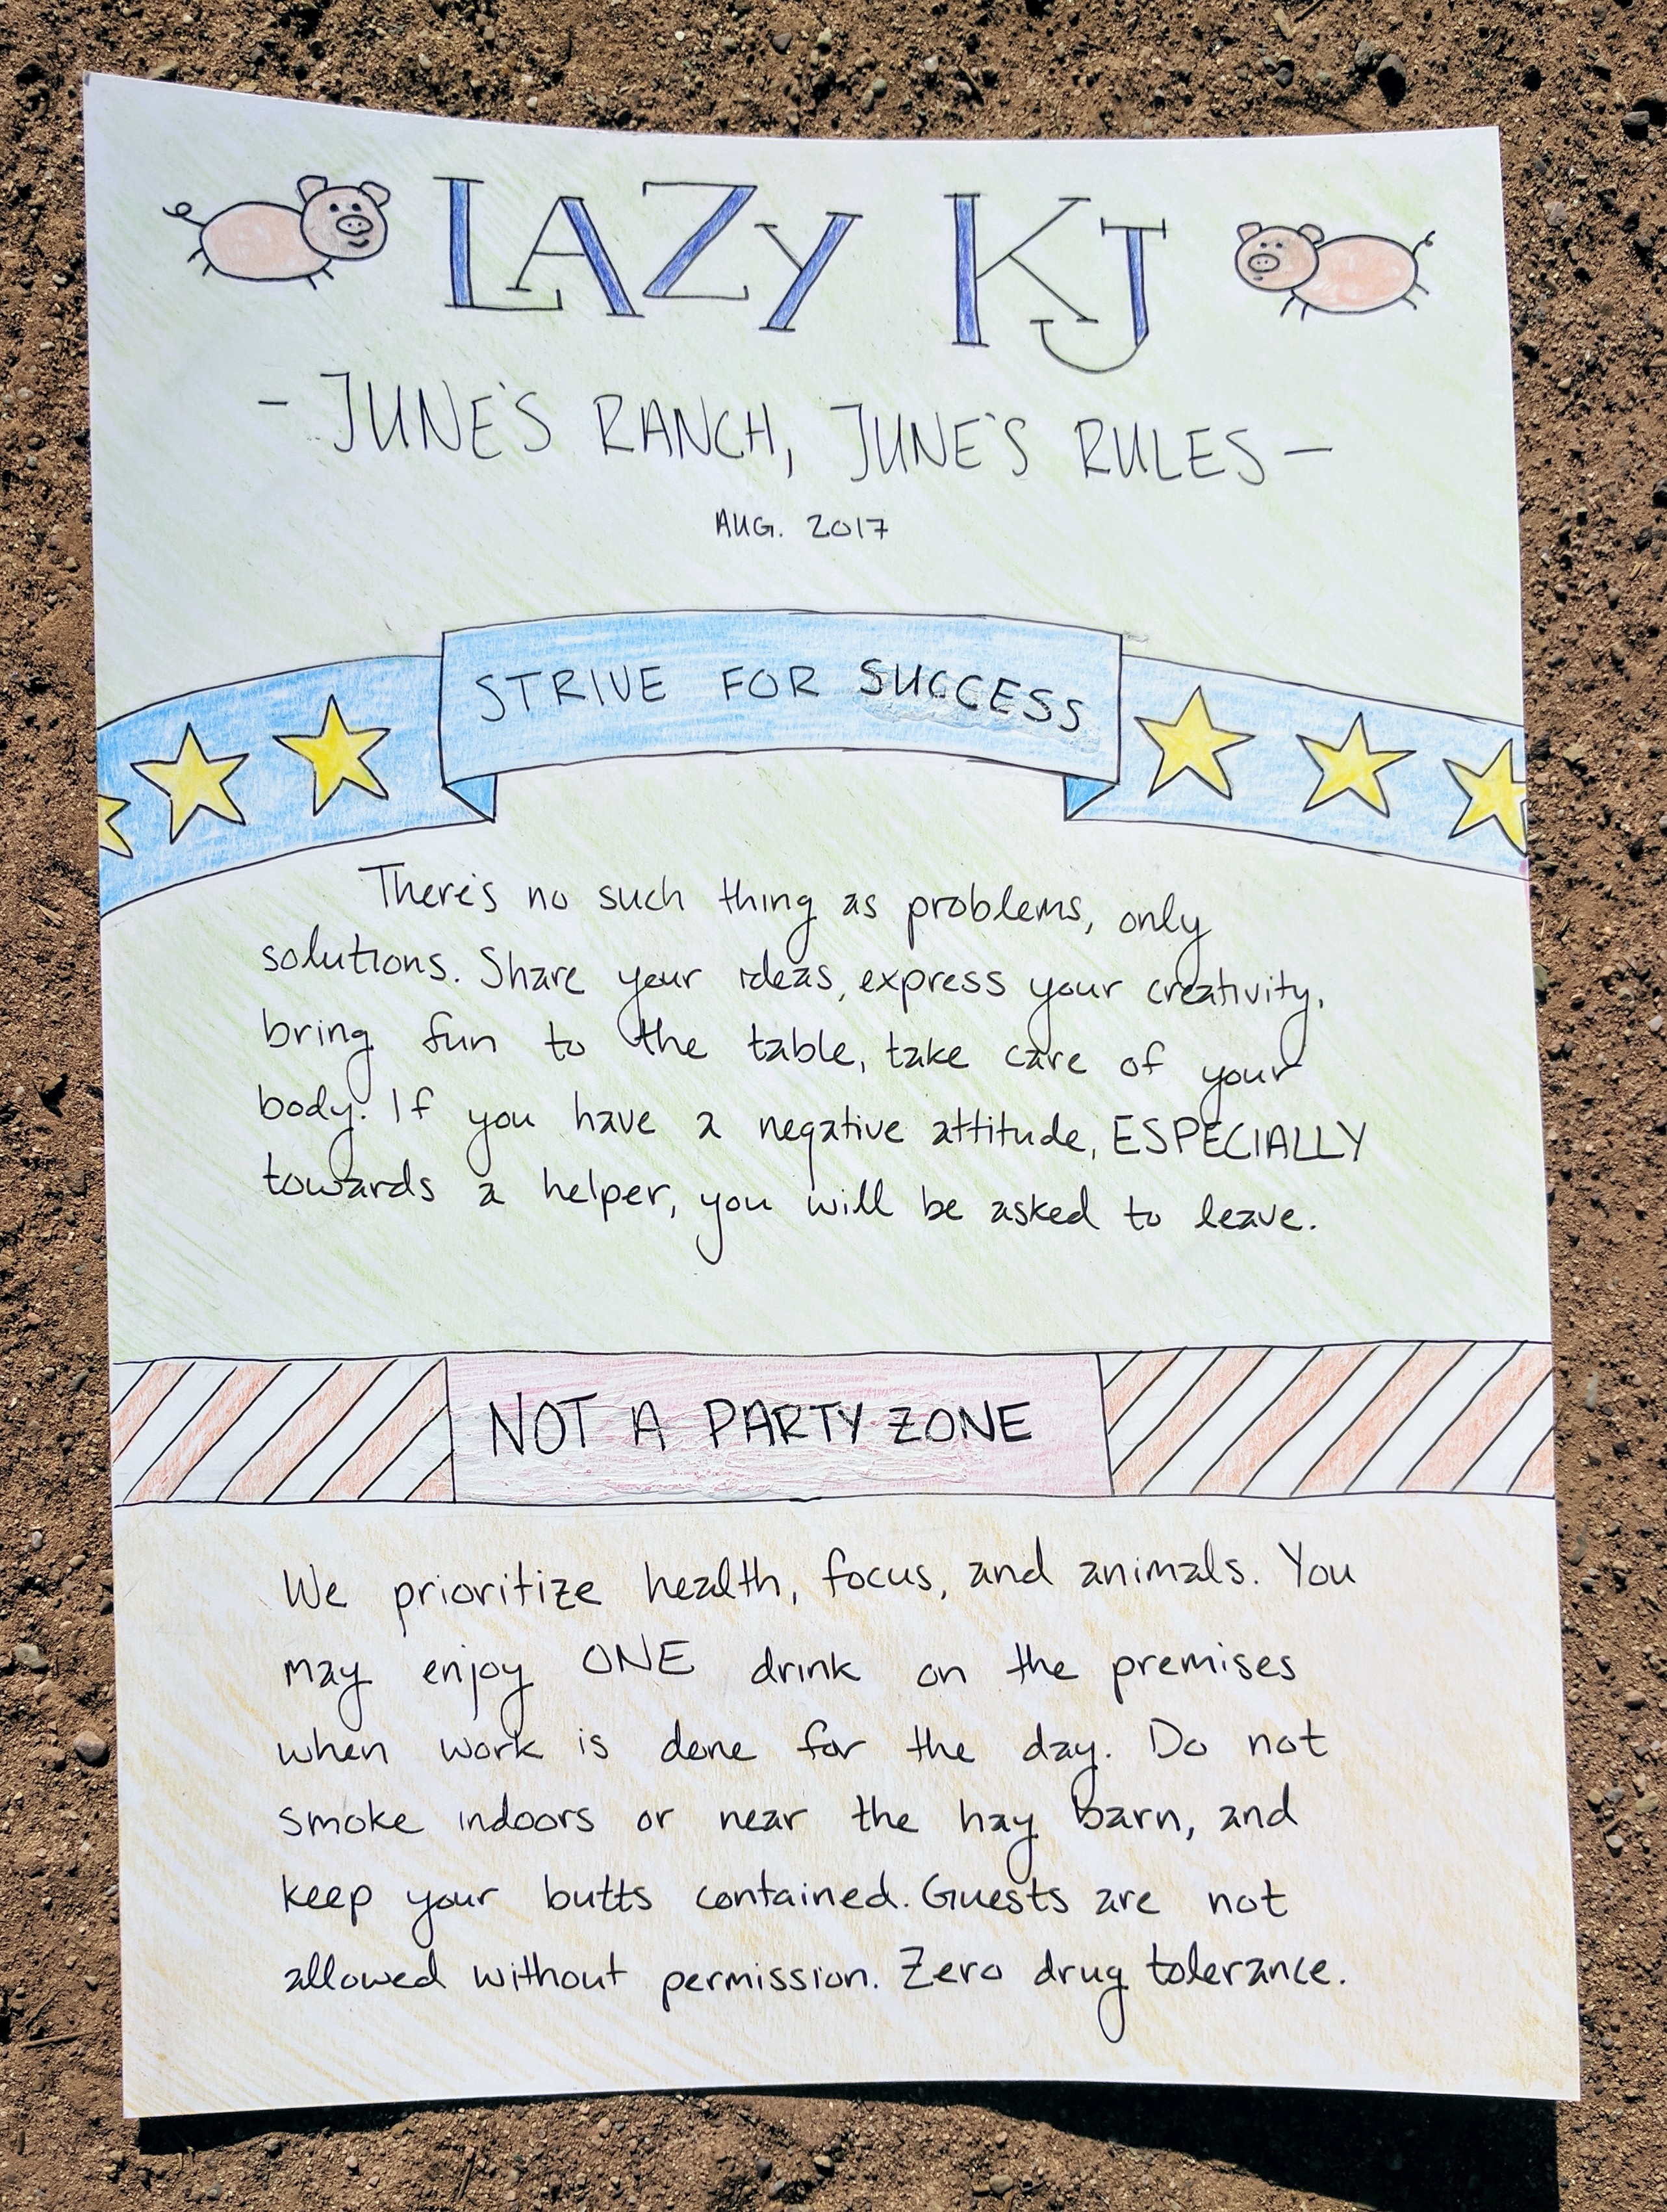 LAZY KJ
- JUNE'S RANCH, JUNE'S RULES -
AUG. 2017
STRIVE FOR SUCCESS
There's no such thing as problems, only
solutions. Share your ideas, express your creativity,
bring fun to the table, take care of your
body. If you have a negative attitude, ESPECIALLY
towards a helper, you will be asked to leave.
NOT A PARTY ZONE
We prioritize health, focus, and animals. You
may enjoy ONE drink on the premises
when work is done for the day. Do not
smoke indoors or near the hay barn, and
keep your butts contained. Guests are not
allowed without permission. Zero drug tolerance.